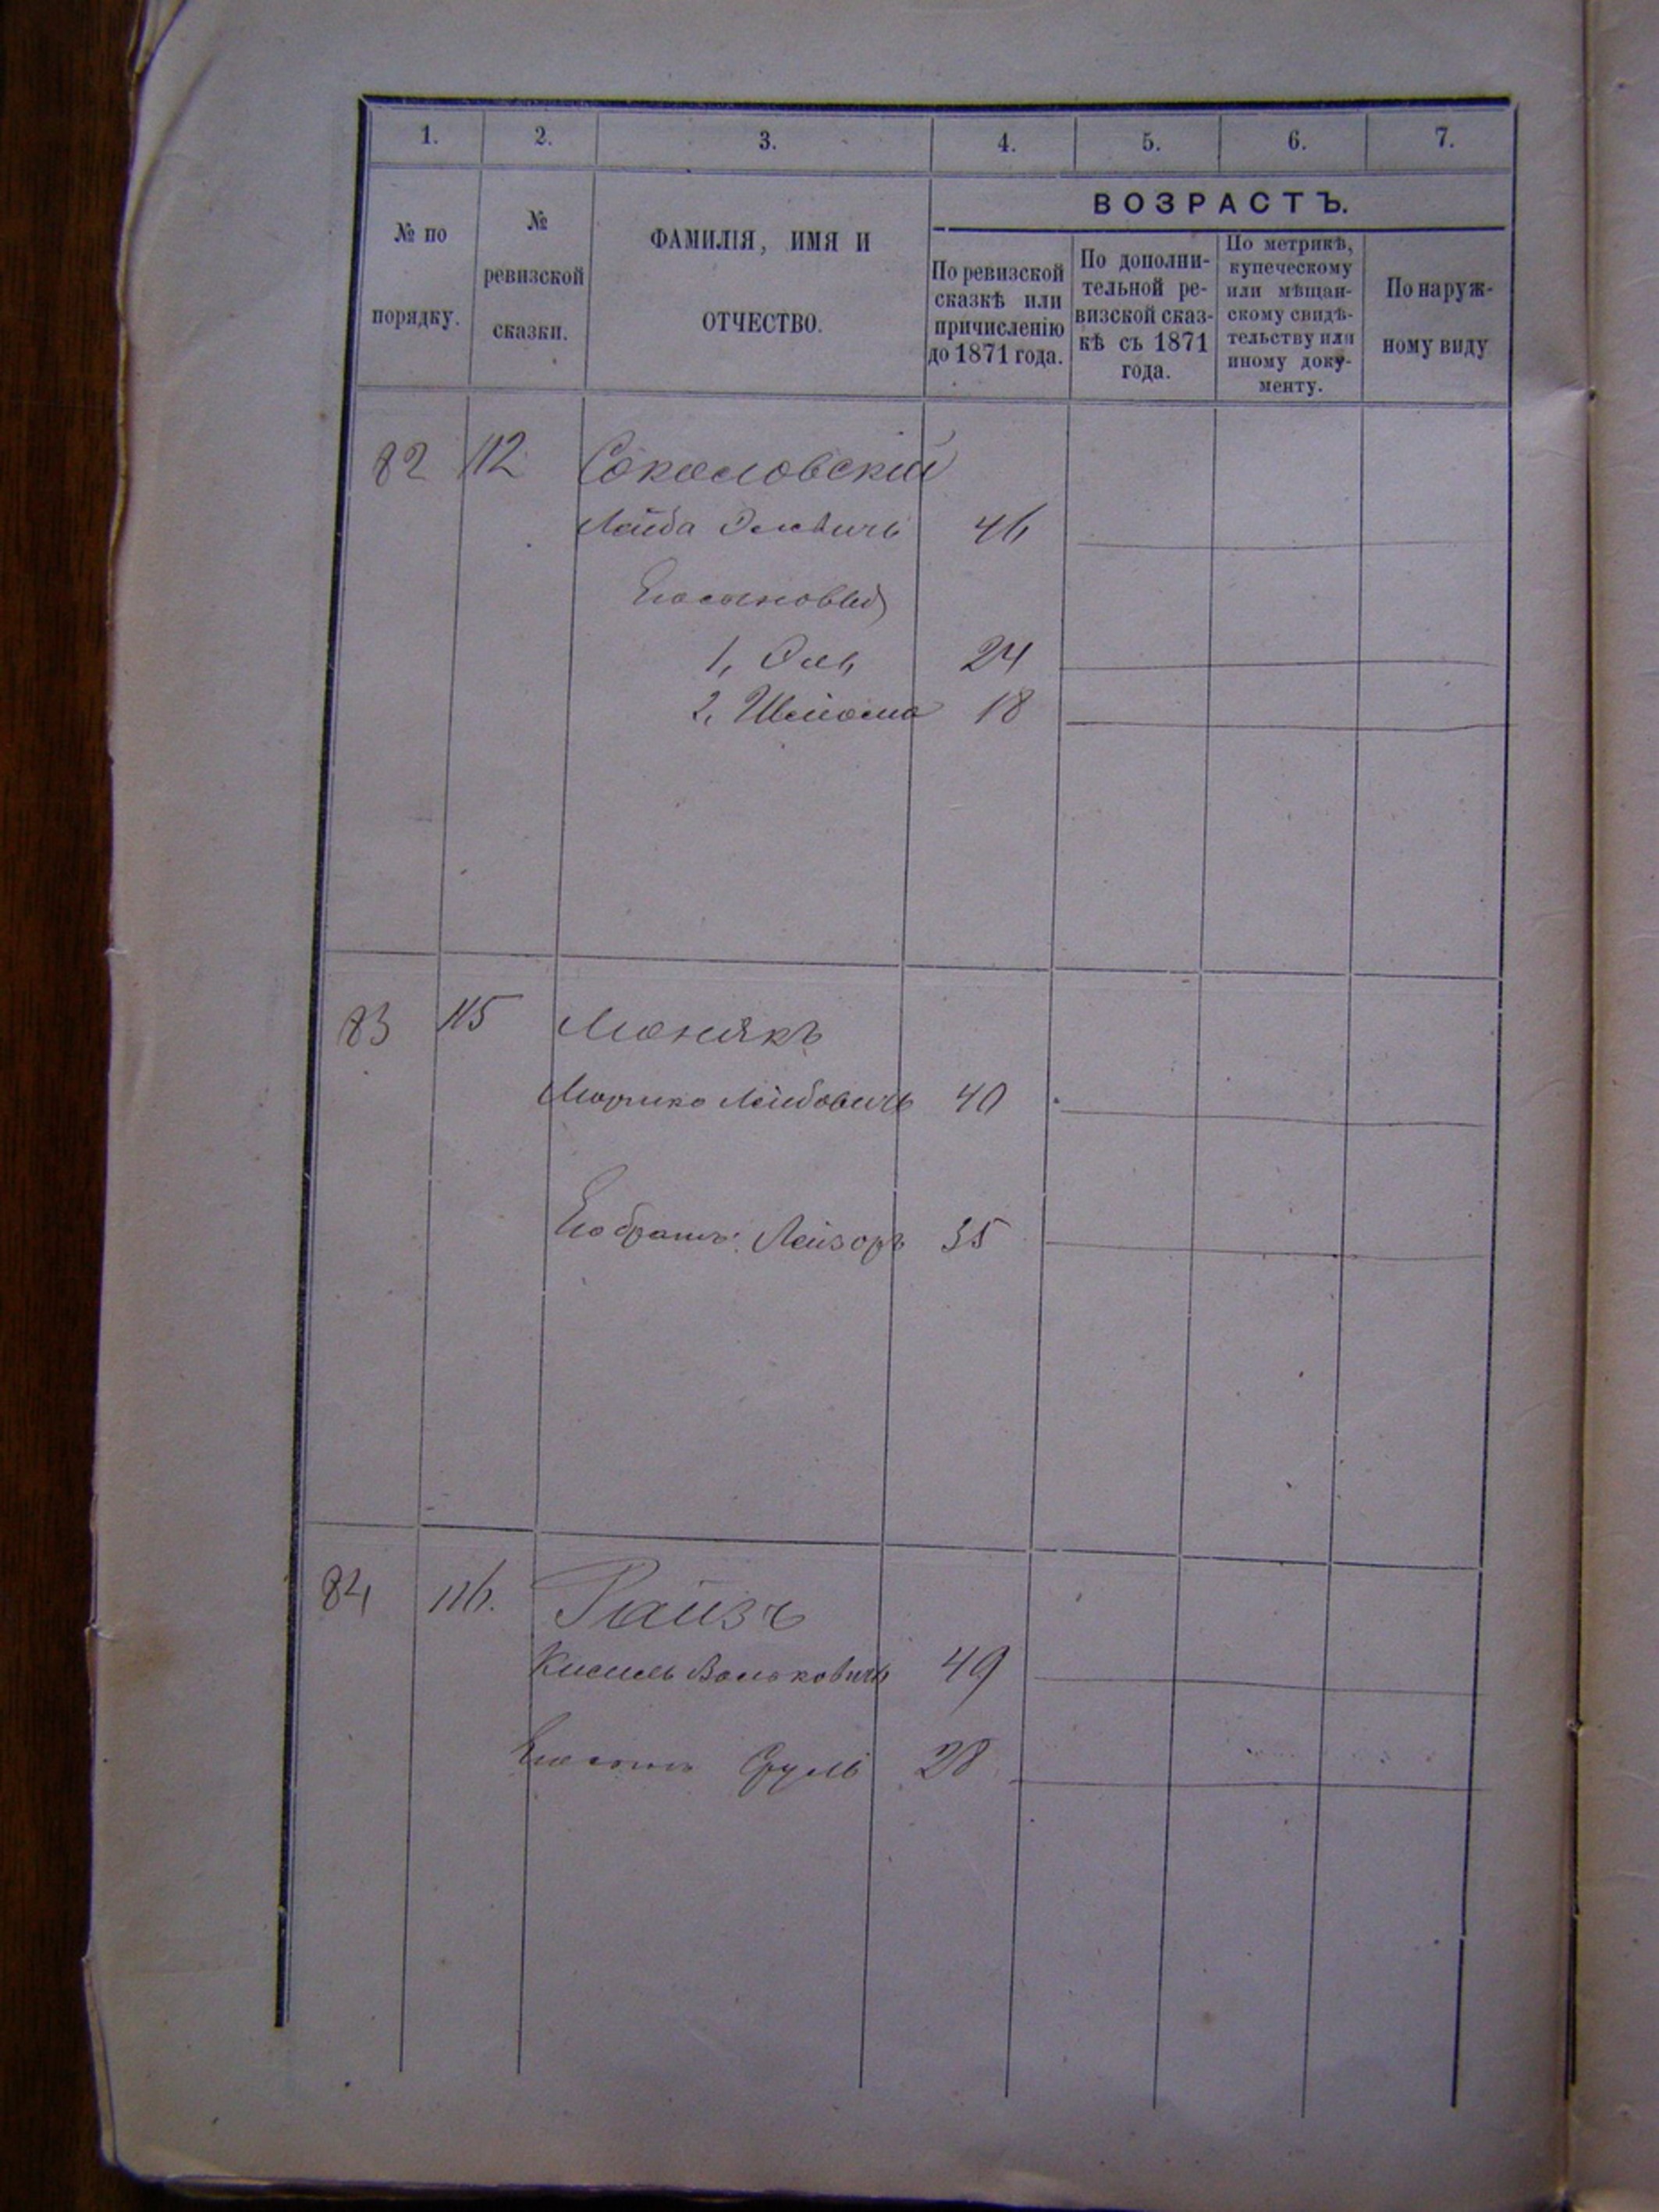 1. 2. 3. 4. 5. 6. 7.
№ по порядку.
№ ревизской сказки.
ФАМИЛІЯ, ИМЯ И
ОТЧЕСТВО.
ВОЗРАСТЪ.
По ревизской
сказкѣ или
причисленію
до 1871 года.
По дополни-
тельной ре-
визской сказ-
кѣ съ 1871
года.
По метрикѣ,
купеческому
или мѣщан-
скому свидѣ-
тельству или
иному доку-
менту.
По наруж-
ному виду
82 112 Соколовскій
Лейба 46
Его сыновья
1, 24
2, Шлиома 18
83 115 Монякъ
Мортко Лейбовичъ 40
Его братъ: Лейзоръ 35
84 116. Райзъ
Кисиль Вольковичъ 49
Его сынъ Сруль 28